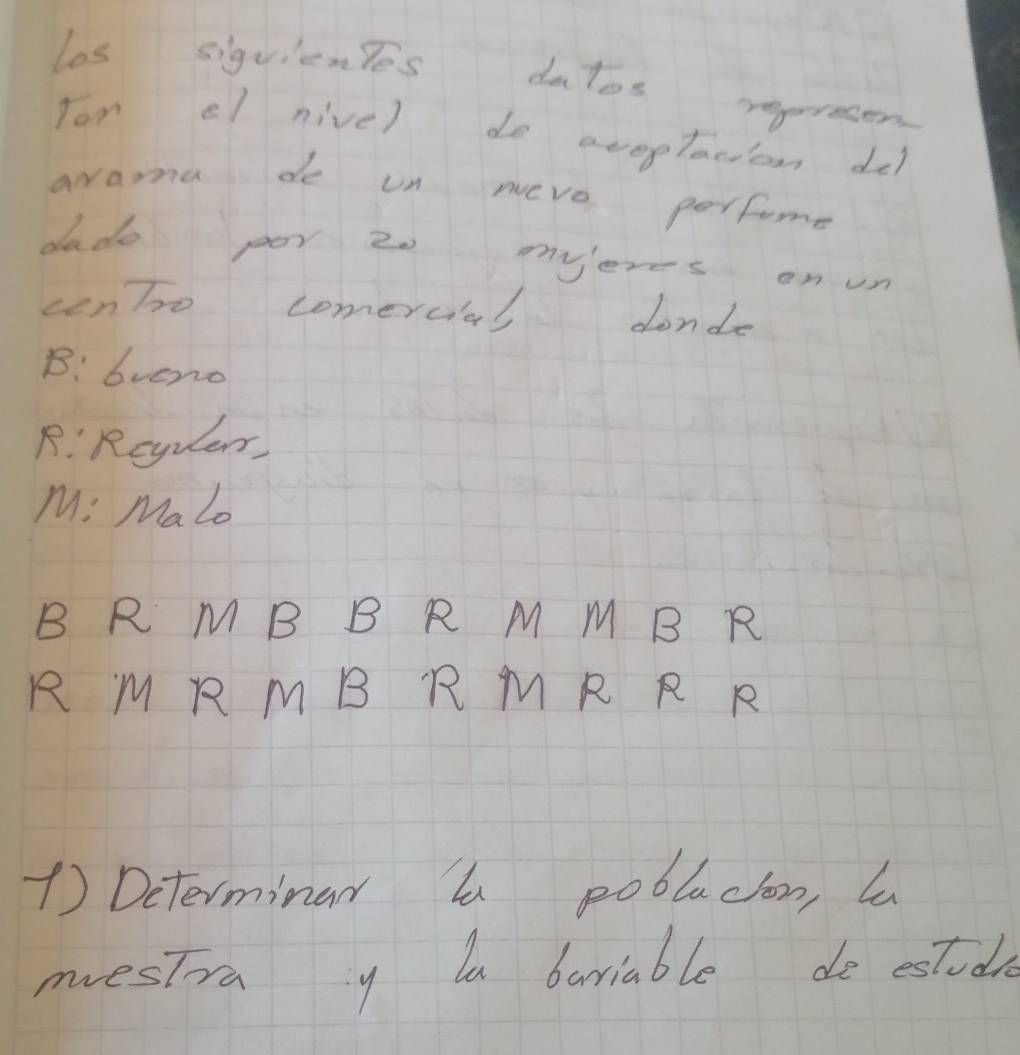 los siguientes datos represen-
Tan el nivel de aceptacion del
aroma de un nuevo perfume
dado por 20 mujeres en un
cenTro comercial, donde
B: bueno
R: Regular,
M: Malo
B R M B B R M M B R
R M R M B R M R R R
1) DeTerminar la poblacion, la
muesTra y la bariable de esTudio